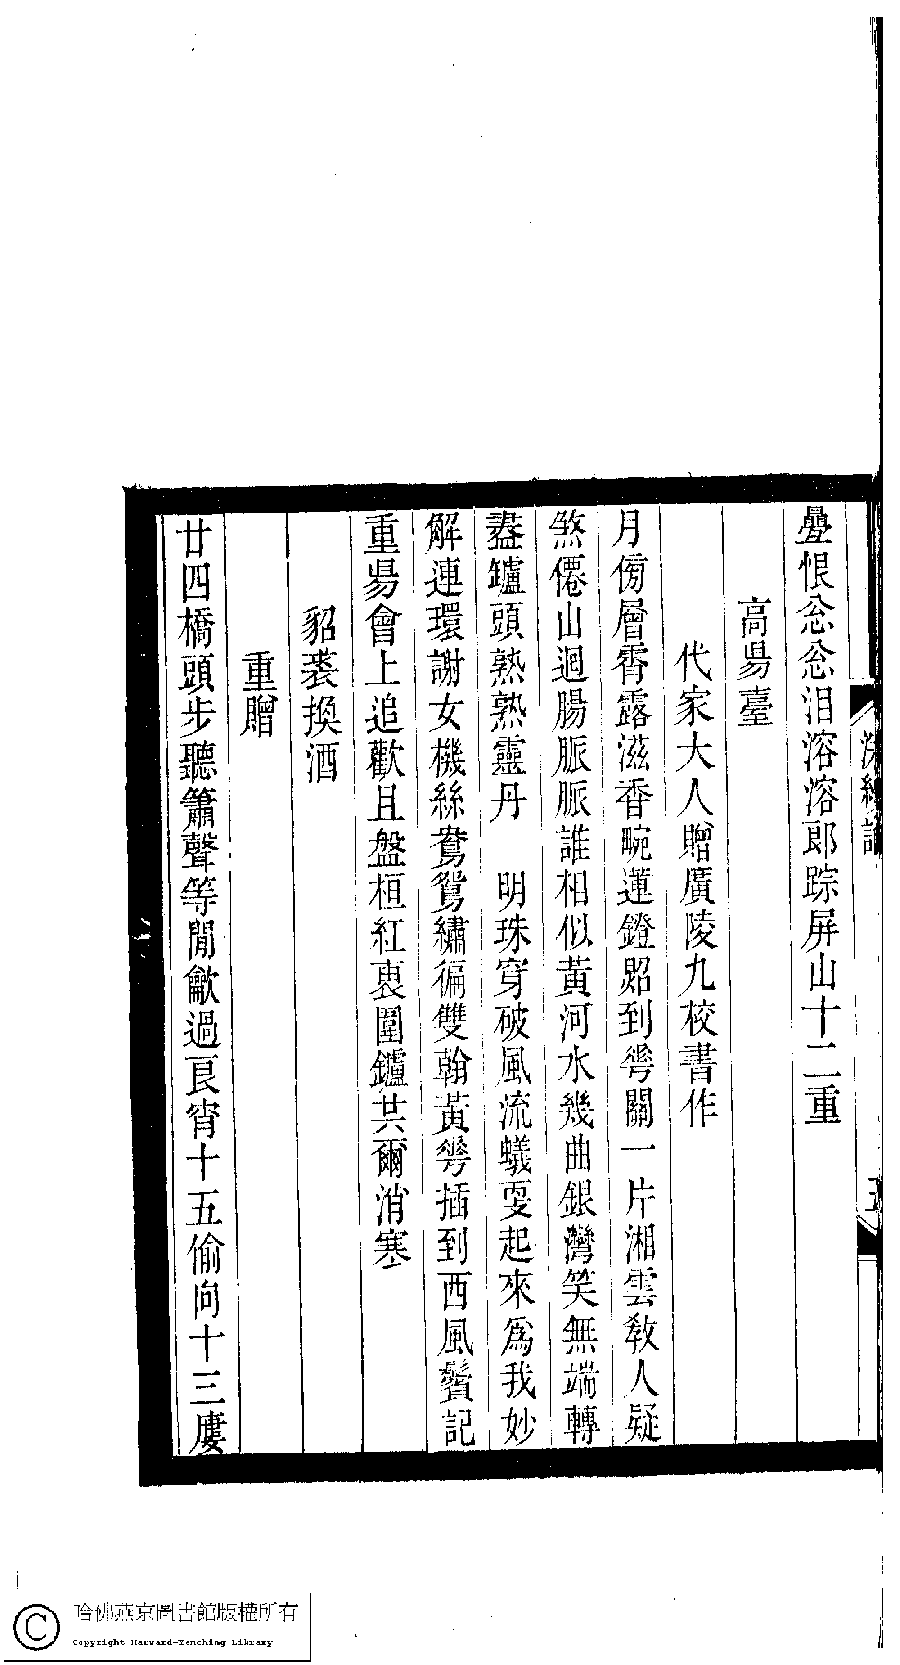 疊恨忩忩泪溶溶郎踪屏山十二重
高昜臺
代家大人贈廣陵九校書作
月傍層霄露滋香畹蓮鐙炤到崋關一片湘雲敎人疑
煞僊山迴腸脈脈誰相似黃河水幾曲銀灣笑無端轉
盡鑪頭熟熟靈丹　明珠穿破風流蟻耍起來爲我妙
解連環謝女機絲鴦鴛繡徧雙翰黃崋插到西風鬢記
重昜會上追歡且盤桓紅裏圍鑪共爾消寒
貂裘換酒
重贈
廿四橋頭步聽簫聲等閒歗過良宵十五偷向十三廔
哈佛燕京圖書館版權所有
Copyright Harvard-Yenching Library